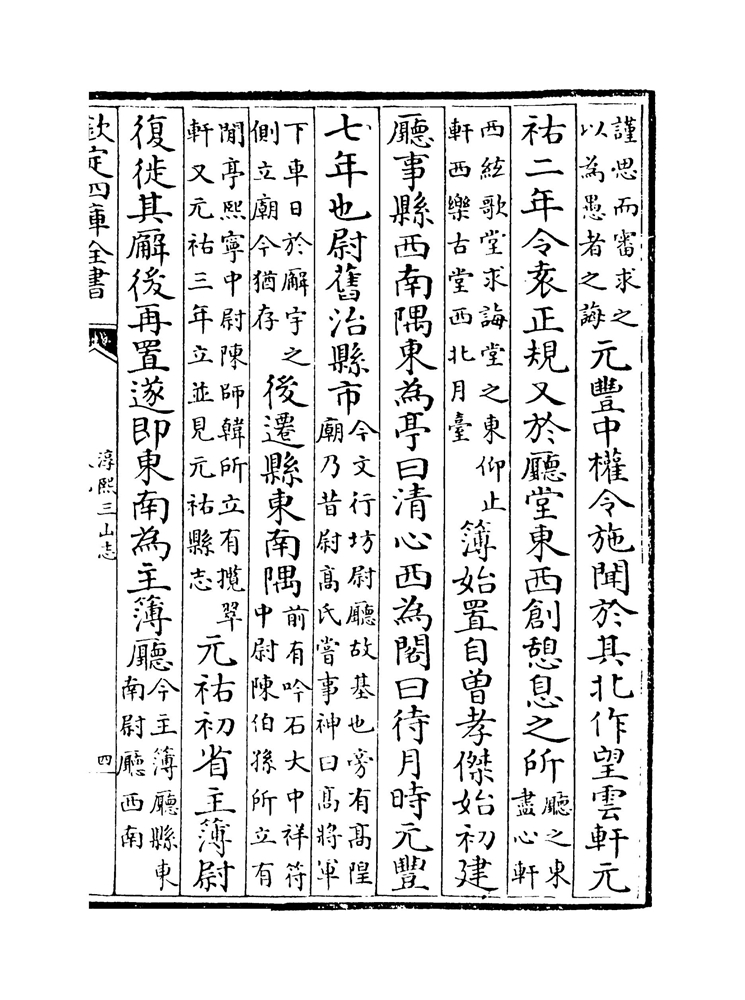 謹思而審求之
以為愚者之誨
元豐中權令施聞於其北作望雲軒元
祐二年令袁正規又於廳堂東西創憩息之所
廳之東
盡心軒
西絃歌堂求誨堂之東仰止
軒西樂古堂西北月臺
簿始置自曾孝傑始初建
廳事縣西南隅東為亭曰清心西為閣曰待月時元豐
七年也尉舊治縣市
今文行坊尉廳故基也旁有髙隍
廟乃昔尉髙氏嘗事神曰髙將軍
下車日於廨宇之
側立廟今猶存
後遷縣東南隅
前有吟石大中祥符
中尉陳伯孫所立有
閒亭熙寧中尉陳師韓所立有攬翠
軒又元祐三年立並見元祐縣志
元祐初省主簿尉
復徙其廨後再置遂即東南為主簿廳
今主簿廳縣東
南尉廳西南
欽定四庫全書
淳熙三山志
四